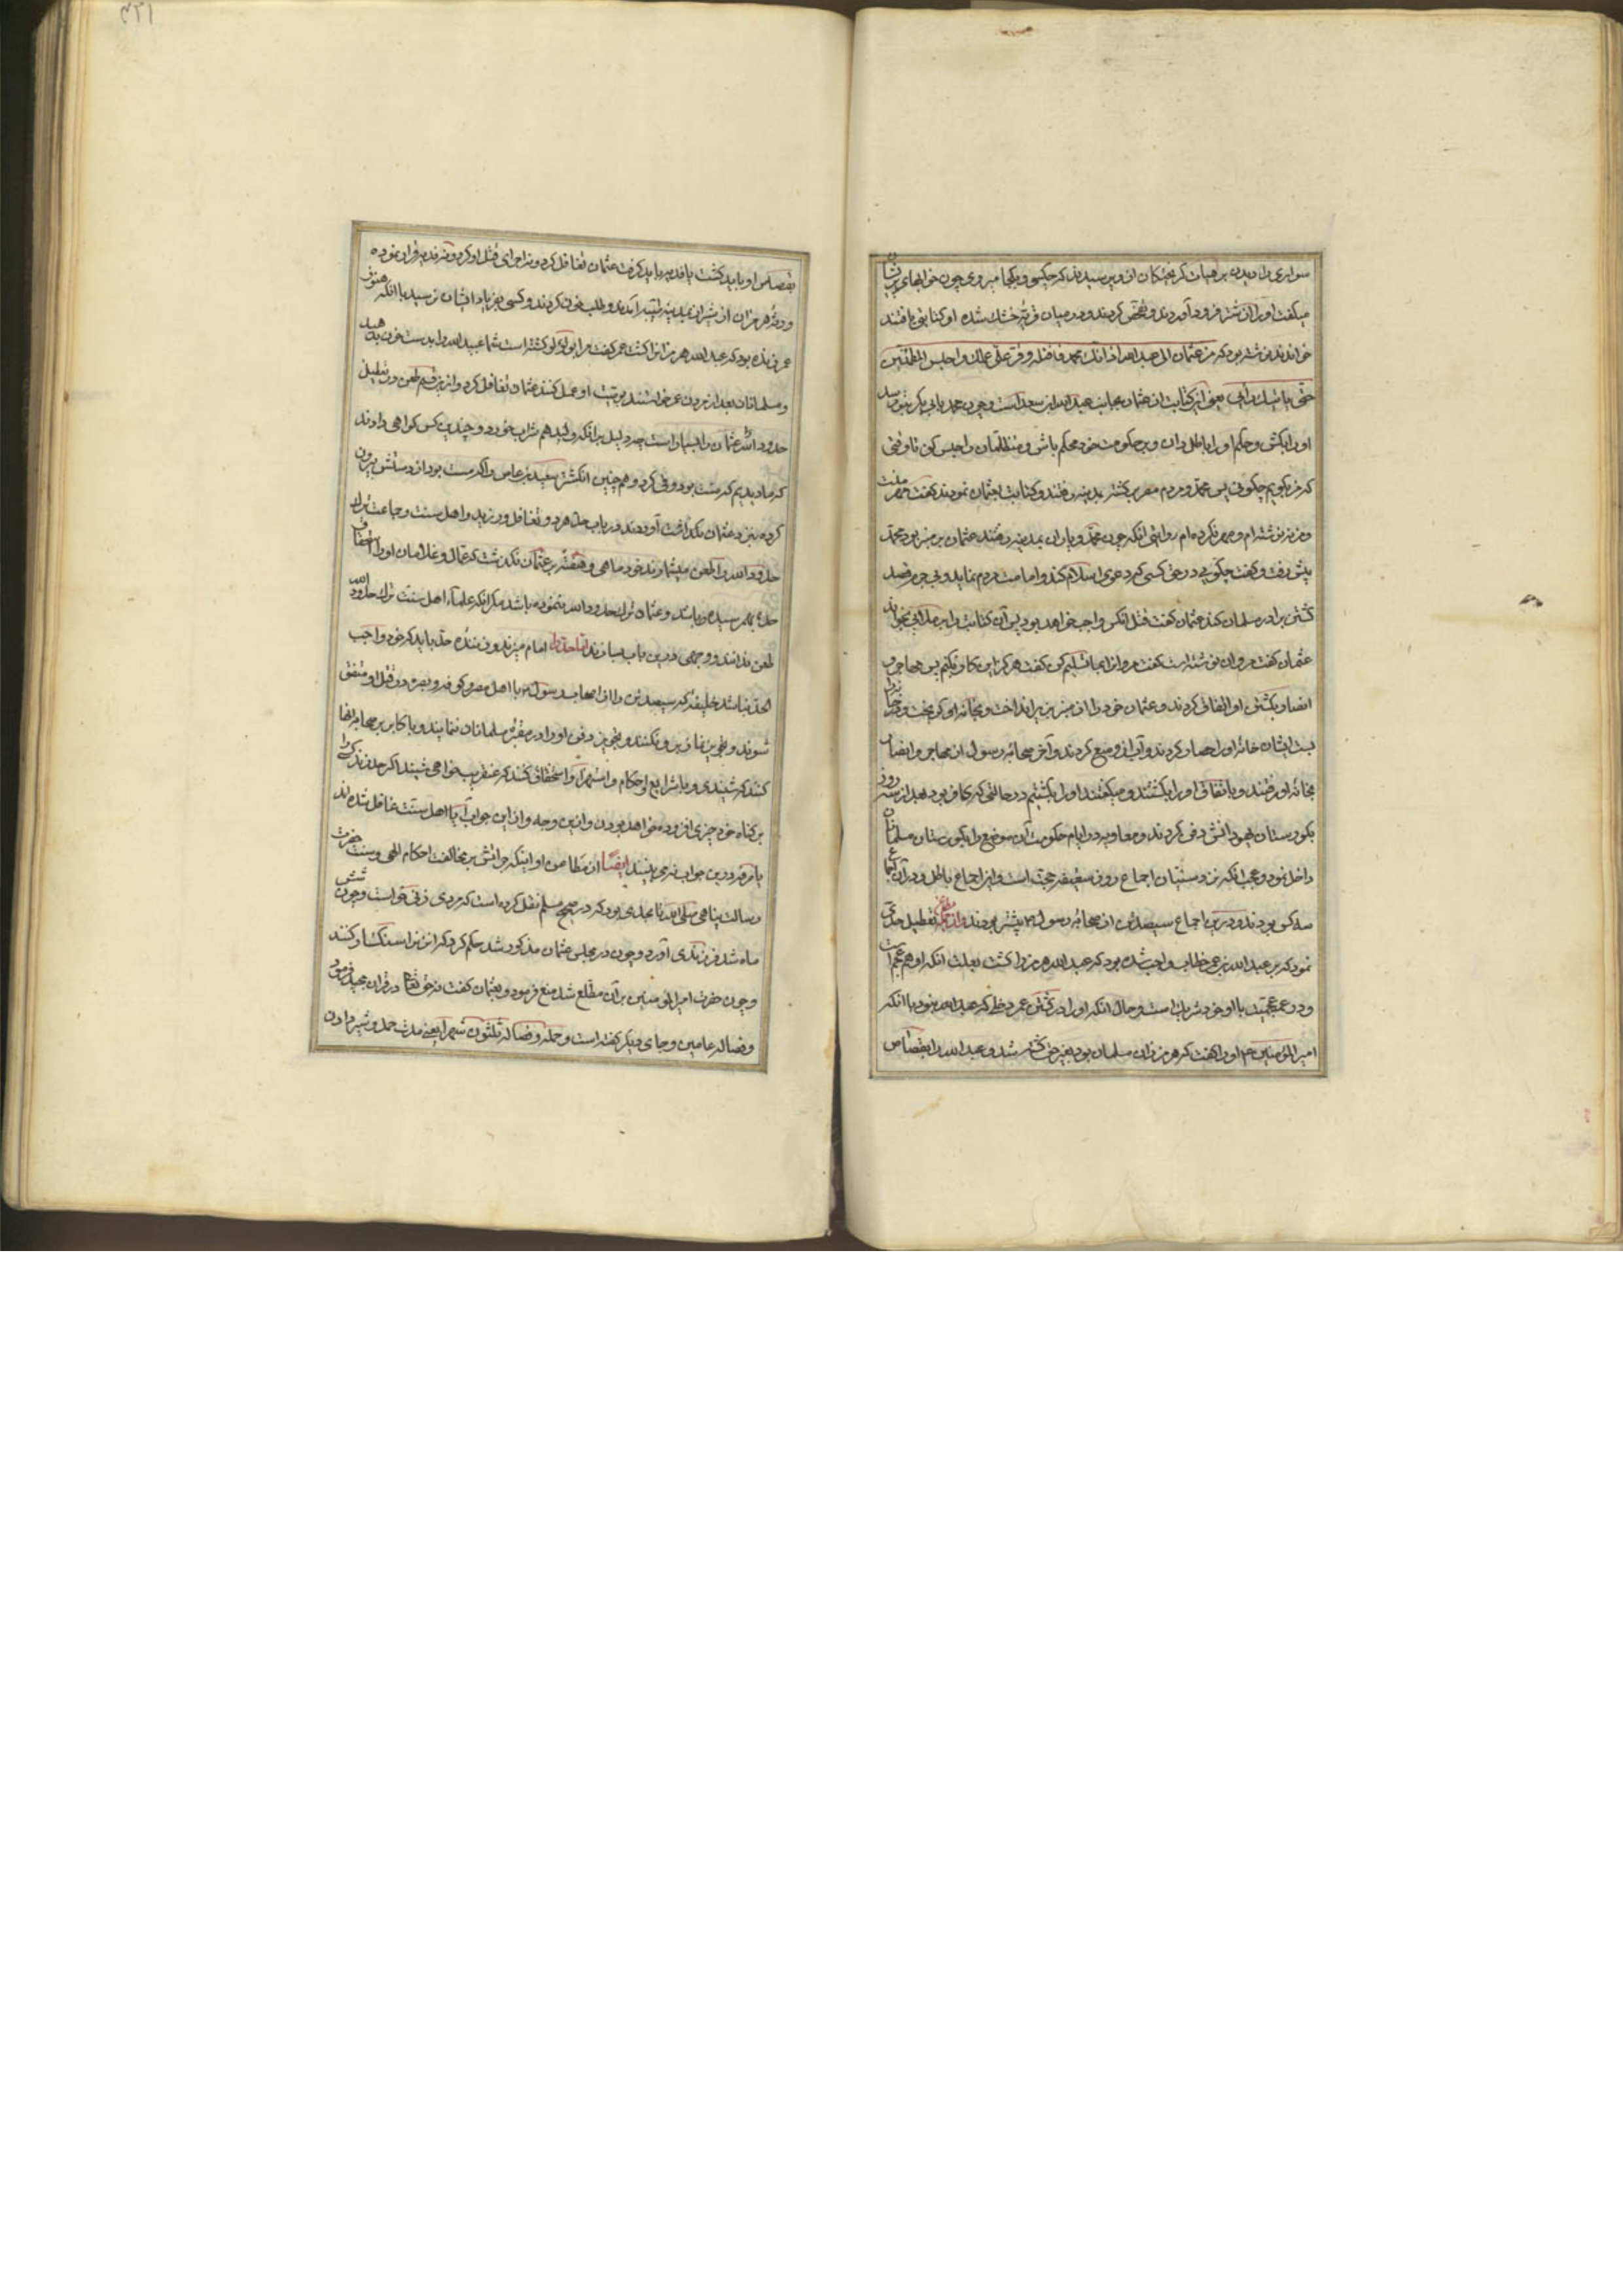 سواری را دیدند بر هیأت کریختکان ازو پرسیدند که چکسی و بکجا میروی چون جوابهای پریشان
میکفت او را از شتر فرود آوردند و تفحص کردند و در میان قربهٔ خشک شده او کتابتی یافتند
خواندند نوشته بود که من عثمان الی عبدالله اذا اتاک محمد فاقتله و قر علی عملک واحبس المتظلمین
حتی یاتیک رأیی یعنی این کتابت از عثمان بجانب عبدالله ابن سعد است و چون محمد بن ابی بکر بتو رسد
او را بکش و حکم او را باطل دان و بر حکومت خود محکم باش و متظلمان را حبس کن تا وقتی
که من بگویم چکونی پس محمد و مردم مصر برکشته بمدینه رفتند و کتابت بعثمان نمودند کفت مهر منست
و من ننوشته‌ام و مهر نکرده‌ام روایتی آنکه چون محمد و یاران بمدینه رفتند عثمان بر منبر بود محمد
پیش رفت و کفت چکویی در حق کسی که دعوی اسلام کند و امامت مردم نماید و بی جرم قصد
کشتن برادر مسلمان کند عثمان کفت قتل آنکس واجب خواهد بود پس آن کتابت را بر ملا بخواند
عثمان کفت مروان نوشته است کفت مروان را بما تسلیم کن کفت هرکز این کار نکنم پس مهاجر و
انصار بکشتن او اتفاق کردند و عثمان خود را از منبر بزیر انداخت و بخانه او کریخت و در
بست ایشان خانه او را حصار کردند و آب ازو منع کردند و آخر صحابه رسول از مهاجر و انصار
بخانه او رفتند و باتفاق او را بکشتند و میکفتند او را بکشتیم در حالتی که کافر بود بعد از سه روز
بکورستان یهودانش دفن کردند و معاویه در ایام حکومت آن موضع را بکورستان مسلمانان
داخل نمود و عجب آنکه نزد سنیان اجماع روز سقیفه حجت است و این اجماع باطل و در آن اجماع
سه کس بودند و درین اجماع سیصد تن از صحابه رسول بیشتر بودند و از جمله تعطیل حدی
نمود که بر عبدالله بن عمر خطاب واجب شده بود که عبدالله هرمز را کشت بعلت آنکه او هم عجم است
و در عجمیت با او خود شریک است و حال آنکه او را در کشتن عمر دخلی که عبدالله نمود با آنکه
امیر المؤمنین او را کفت که هرمزان مسلمان بود بغیر حق کشته شد و عبدالله را بقصاص
بقصاص او باید کشت یا فدیه باید کرفت عثمان تغافل کرد و نه اجرای قتل او کرد و نه فدیه قرار نموده
ورثهٔ هرمزان از شیراز بمدینه طیبه آمدند و طلب خون کردند و کسی بفریاد ایشان نرسید با آنکه هنوز
عمر زنده بود که عبدالله هرمزان را کشت عمر کفت مرا ابولؤلؤ کشته است شما عبیدالله را بدست خون بدهید
و مسلمانان بعد از مردن عمر خواستند بوصیت او عمل کنند عثمان تغافل کرد و ازین قسم طعن در تعطیل
حدود الله عثمان را بسیار است چه دلیل بر آنکه ولید هم شراب خورد و چندین کس کواهی دادند
که ما دیدیم که مست بود و قی کرد و هم چنین انکشتر سعید بن عاص را که مست بود از دستش بیرون
کرده بنزد عثمان بکذاشت آوردند در باب حد هر دو تغافل ورزید و اهل سنت و جماعت ترک
حدود الله را طعن میشمارند خود ماهی و هفته بر عثمان نکذشت که عمال و غلامان او را استحقاق
حد بهم رسیده باشد و عثمان ترک حدود الله ننموده باشد مکر آنکه علماء اهل سنت ترک حدود الله
طعن ندانند و وجهی درین باب بسازند اما حد را امام میزند و زننده حد باید که خود واجب
الحد نباشد خلیفهٔ که سیصد تن از اصحاب رسول با اهل مصر و کوفه و بصره در قتل او متفق
شوند و تجویز نماز برو نکنند و تجویز دفن او در مقبره مسلمانان ننمایند و با کابر صحابه انها
کنند که شنیدی و با شرایع و احکام و استهزاء و استخفاف کنند که عنقریب خواهی شنید اکر حد نزند کسی را
بر کناه خود چیزی افزوده نخواهد بودن و ازین وجه و از این جواب آیا اهل سنت غافل شده‌اند
یا مرقدر درین جواب نمی بینند ایضا از مطاعن او اینکه جرأتش بر مخالفت احکام الهی و سنت حضرت
رسالت پناهی صلی الله تا بحدی بود که در صحیح مسلم نقل کرده است که مردی زنی خواست و چون شش
ماه شد فرزندی آورد و چون در مجلس عثمان مذکور شد حکم کرد که آن زن را سنکسار کنند
و چون حضرت امیر المؤمنین بر آن مطلع شد منع فرمود و بعثمان کفت که حق تعالی در قرآن مجید فرموده
و فصاله عامین و جای دیکر کفته است و حمله و فصاله ثلثون شهرا یعنی مدت حمل و شیر دادن